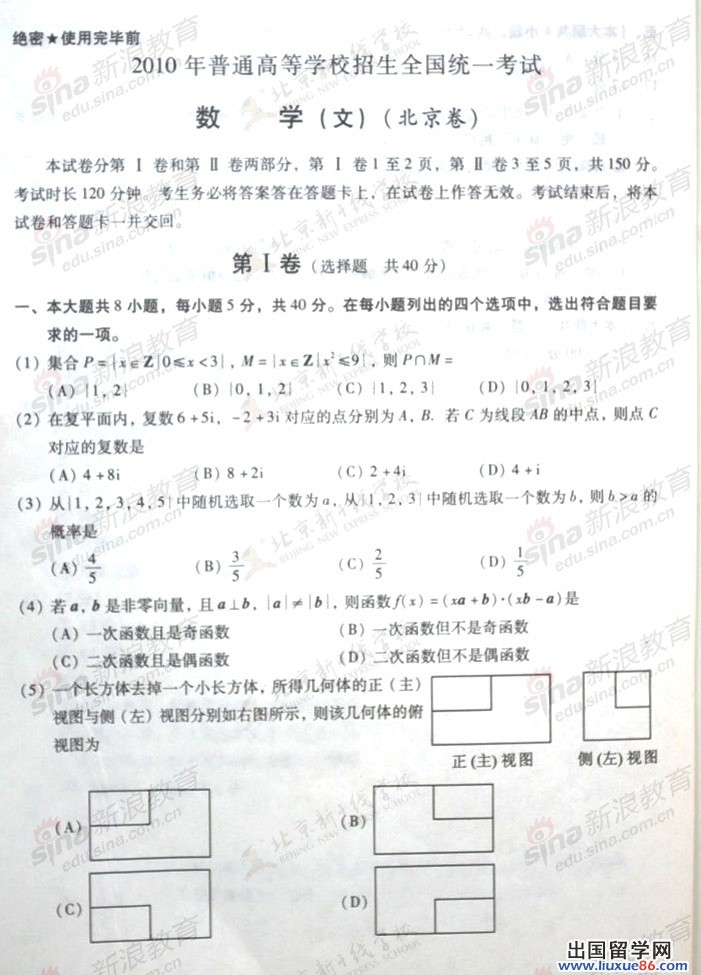 绝密★使用完毕前
2010 年普通高等学校招生全国统一考试
数 学(文)(北京卷)
本试卷分第 Ⅰ 卷和第 Ⅱ 卷两部分,第 Ⅰ 卷 1 至 2 页,第 Ⅱ 卷 3 至 5 页,共 150 分。
考试时长 120 分钟。考生务必将答案答在答题卡上,在试卷上作答无效。考试结束后,将本
试卷和答题卡一并交回。
第 Ⅰ 卷(选择题 共 40 分)
一、本大题共 8 小题,每小题 5 分,共 40 分。在每小题列出的四个选项中,选出符合题目要
求的一项。
(1) 集合 P={x∈Z|0≤x<3},M={x∈Z|x²≤9},则 P∩M=
(A) {1,2} (B) {0,1,2} (C) {1,2,3} (D) {0,1,2,3}
(2) 在复平面内,复数 6+5i,-2+3i 对应的点分别为 A,B. 若 C 为线段 AB 的中点,则点 C
对应的复数是
(A) 4+8i (B) 8+2i (C) 2+4i (D) 4+i
(3) 从{1,2,3,4,5}中随机选取一个数为 a,从{1,2,3}中随机选取一个数为 b,则 b>a 的
概率是
(A) 4/5 (B) 3/5 (C) 2/5 (D) 1/5
(4) 若 a,b 是非零向量,且 a⊥b,|a|≠|b|,则函数 f(x)=(xa+b)·(xb-a)是
(A) 一次函数且是奇函数 (B) 一次函数但不是奇函数
(C) 二次函数且是偶函数 (D) 二次函数但不是偶函数
(5) 一个长方体去掉一个小长方体,所得几何体的正(主)
视图与侧(左)视图分别如右图所示,则该几何体的俯
视图为
正(主)视图 侧(左)视图
(A) (B)
(C) (D)
sina 新浪教育
edu.sina.com.cn
北京新干线学校
BEIJING NEW EXPRESS SCHOOL
出国留学网
www.liuxue86.com